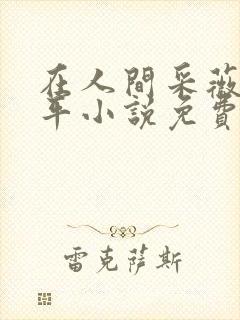 在人間采薇
年小説免費
雷克薩斯